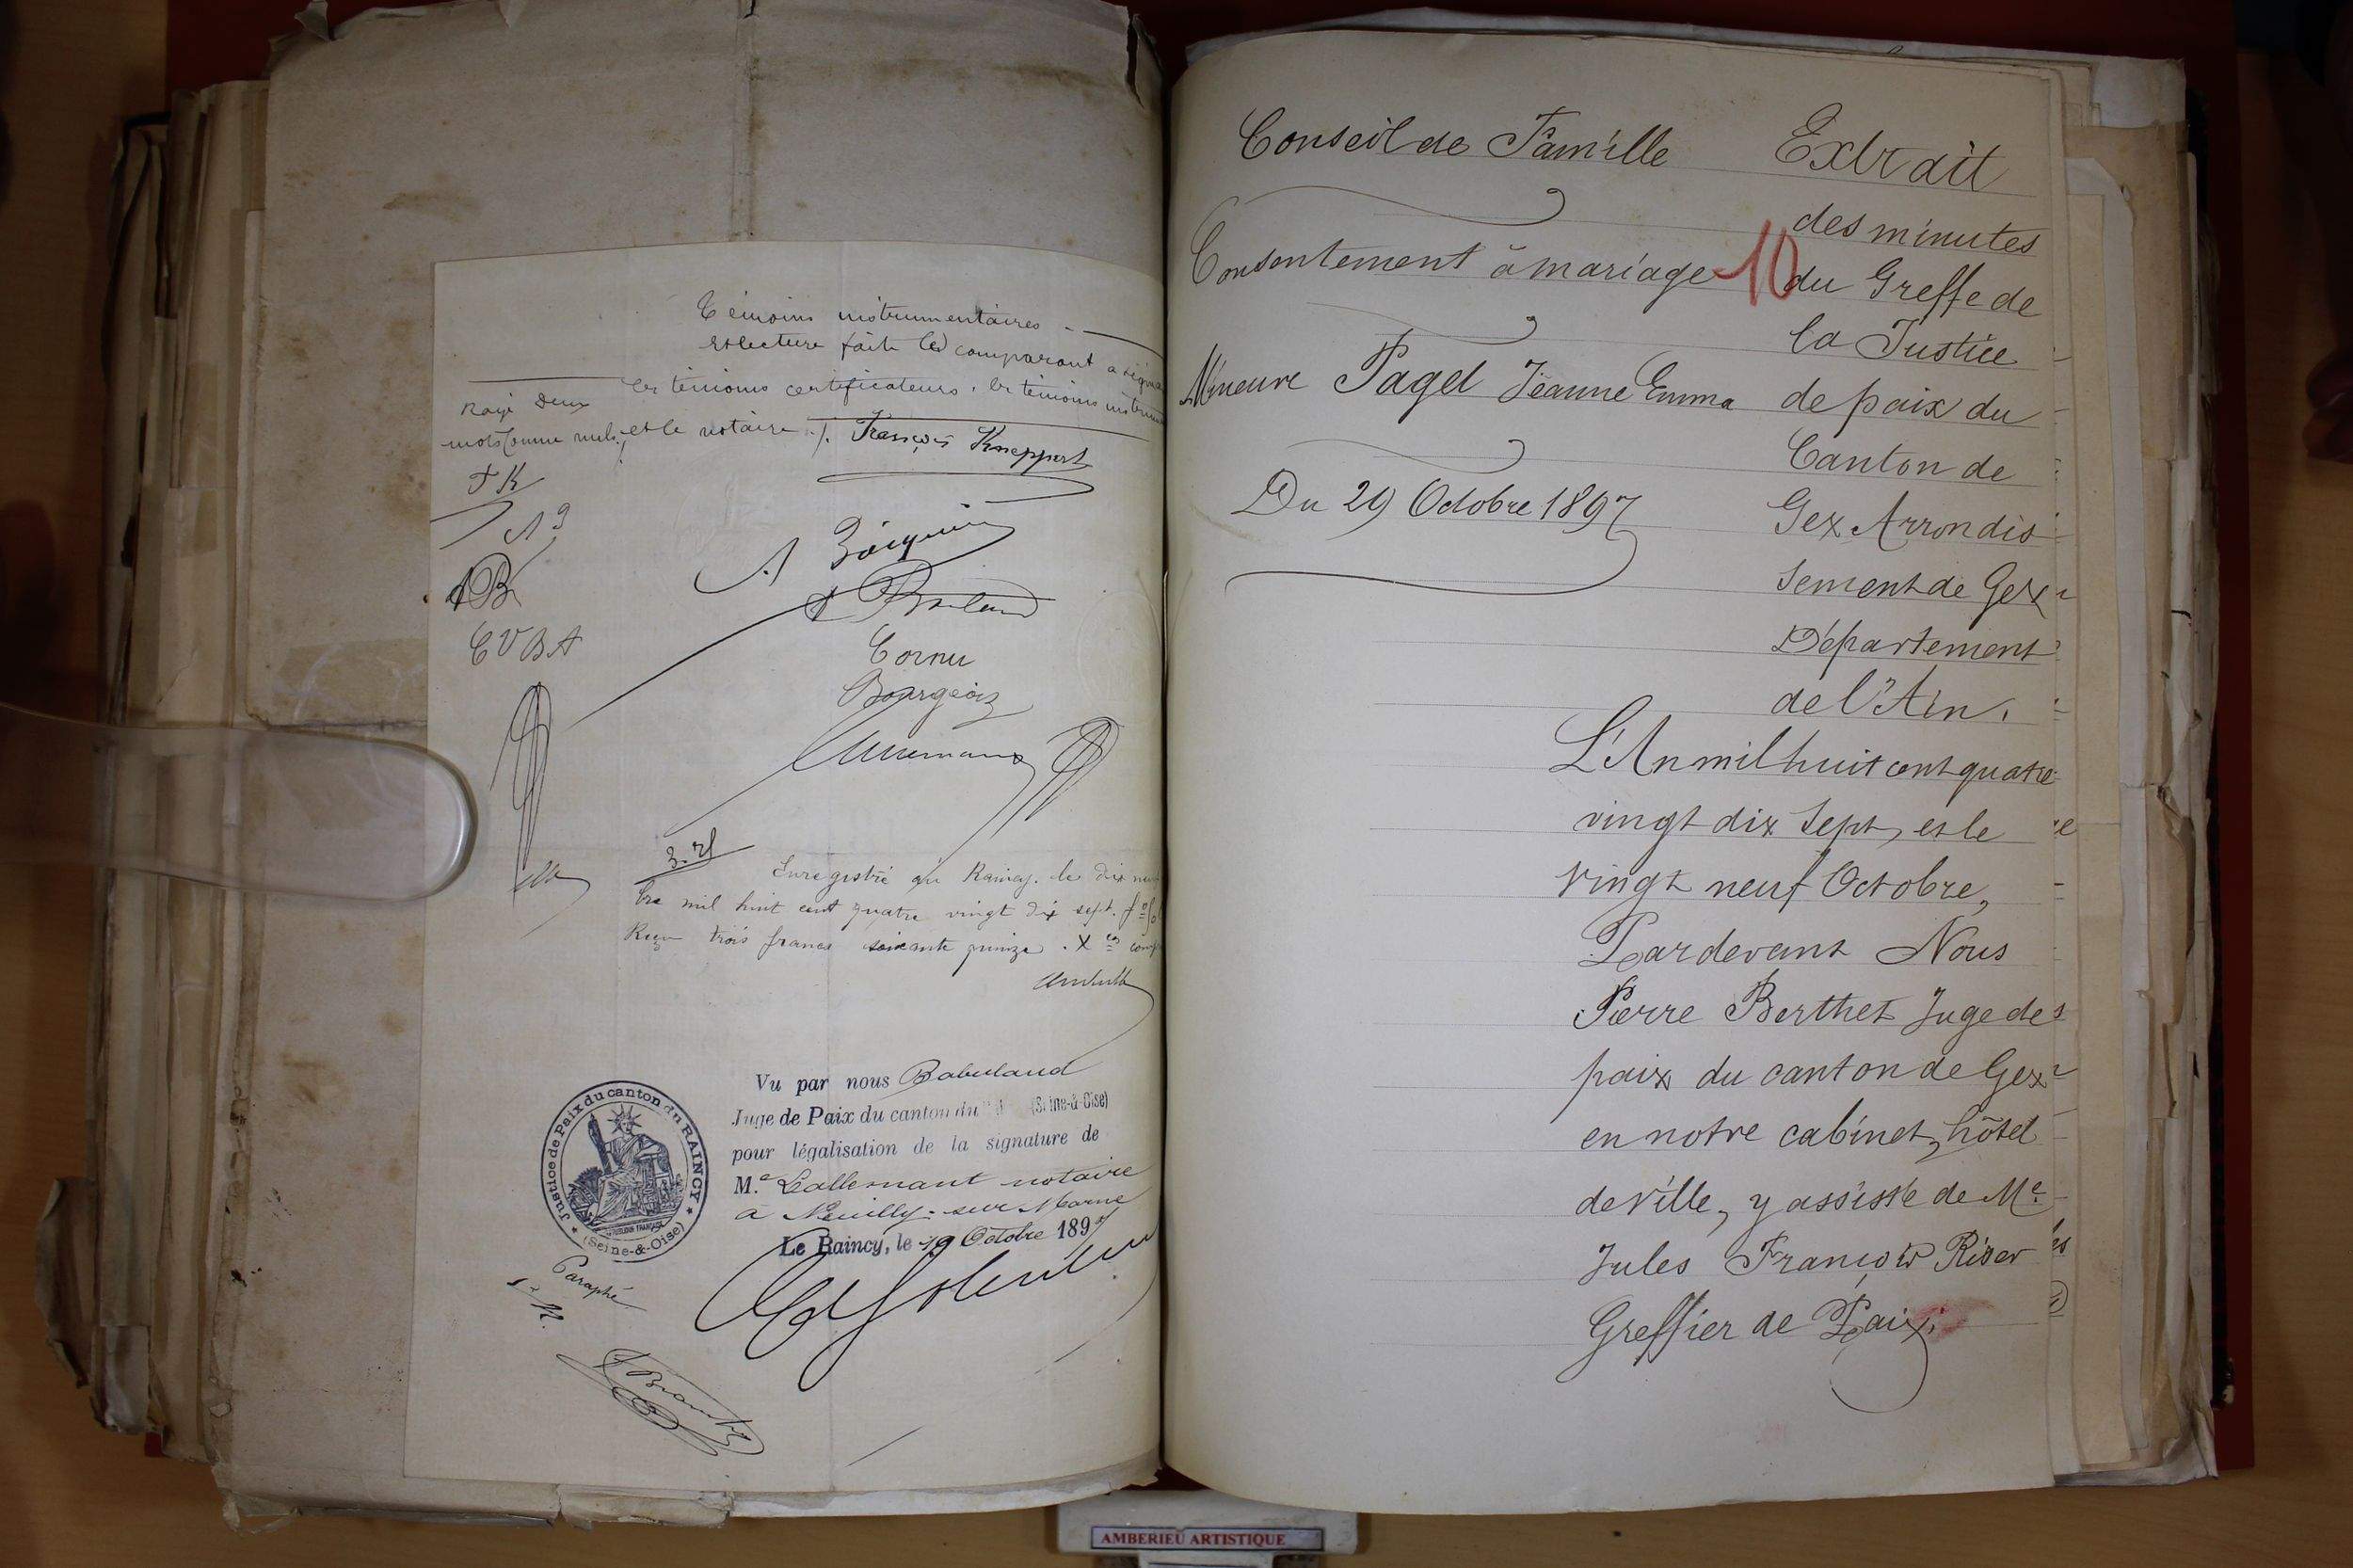 témoins instrumentaires. —
et lecture faite le comparant a signé
les témoins certificateurs, les témoins instrumen
et le notaire ./.
Rayé deux
mots comme nuls.
François Kneppert
FK
AB
CVBA
Cornu
Bourgeois
3.75
Enregistré au Raincy. le dix neuf
bre mil huit cent quatre vingt dix sept. fo
Reçu trois francs soixante quinze.
Vu par nous
Juge de Paix du canton du (Seine-&-Oise)
pour légalisation de la signature de
M.e Lallemant notaire
à Neuilly-sur-Marne
Le Raincy, le 19 Octobre 1897
Justice de Paix du canton du RAINCY
(Seine-&-Oise)
Paraphé
Conseil de Famille
Consentement à mariage
Mineure Pagel Jeanne Emma
Du 29 Octobre 1897
10
Extrait
des minutes
du Greffe de
la Justice
de paix du
Canton de
Gex Arrondis
sement de Gex
Département
de l'Ain.
L'An mil huit cent quatre
vingt dix sept, et le
vingt neuf Octobre,
Pardevant Nous
Pierre Berthet Juge de
paix du canton de Gex
en notre cabinet, hôtel
de ville, y assisté de Me
Jules François
Greffier de Paix;
AMBERIEU ARTISTIQUE